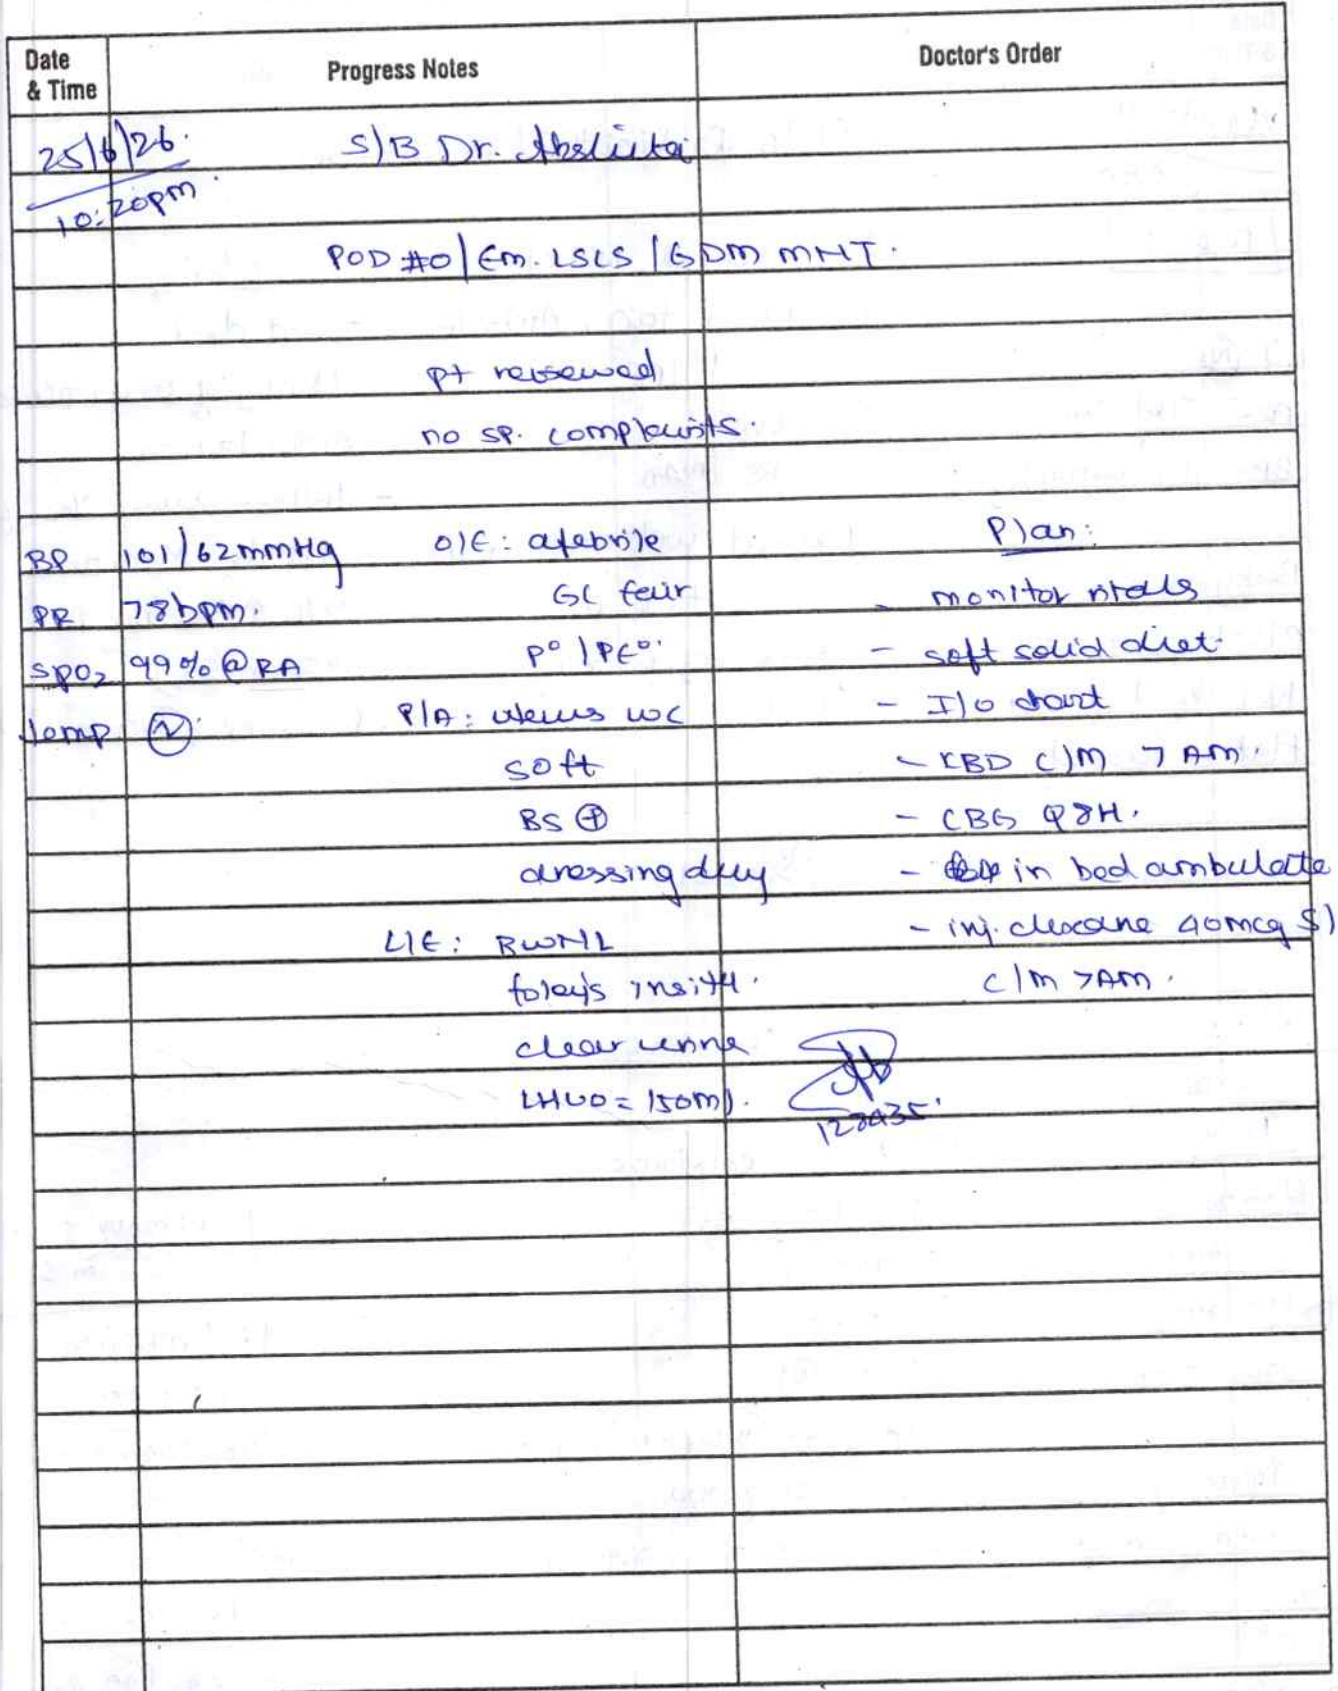 Date & Time
Progress Notes
Doctor's Order
25/6/26.
10:20pm.
S/B Dr.
POD #0/ Em. LSCS / GDM MNT.
pt reviewed
no sp. complaints.
BP 101/62mmHg
PR 78bpm.
SpO2 99% @ RA
temp (N).
O/E: afebrile
GC fair
P° / PE°.
P/A: uterus WC
soft
BS ⊕
dressing dry
L/E: BWNL
foley's insitu.
clear urine
LHUO = 150ml.
Plan:
- monitor vitals
- soft solid diet.
- I/O chart
- KBD C/M 7 AM.
- CBG Q8H.
- in bed ambulate
- inj. clexane 40mcg S/
C/M 7AM.